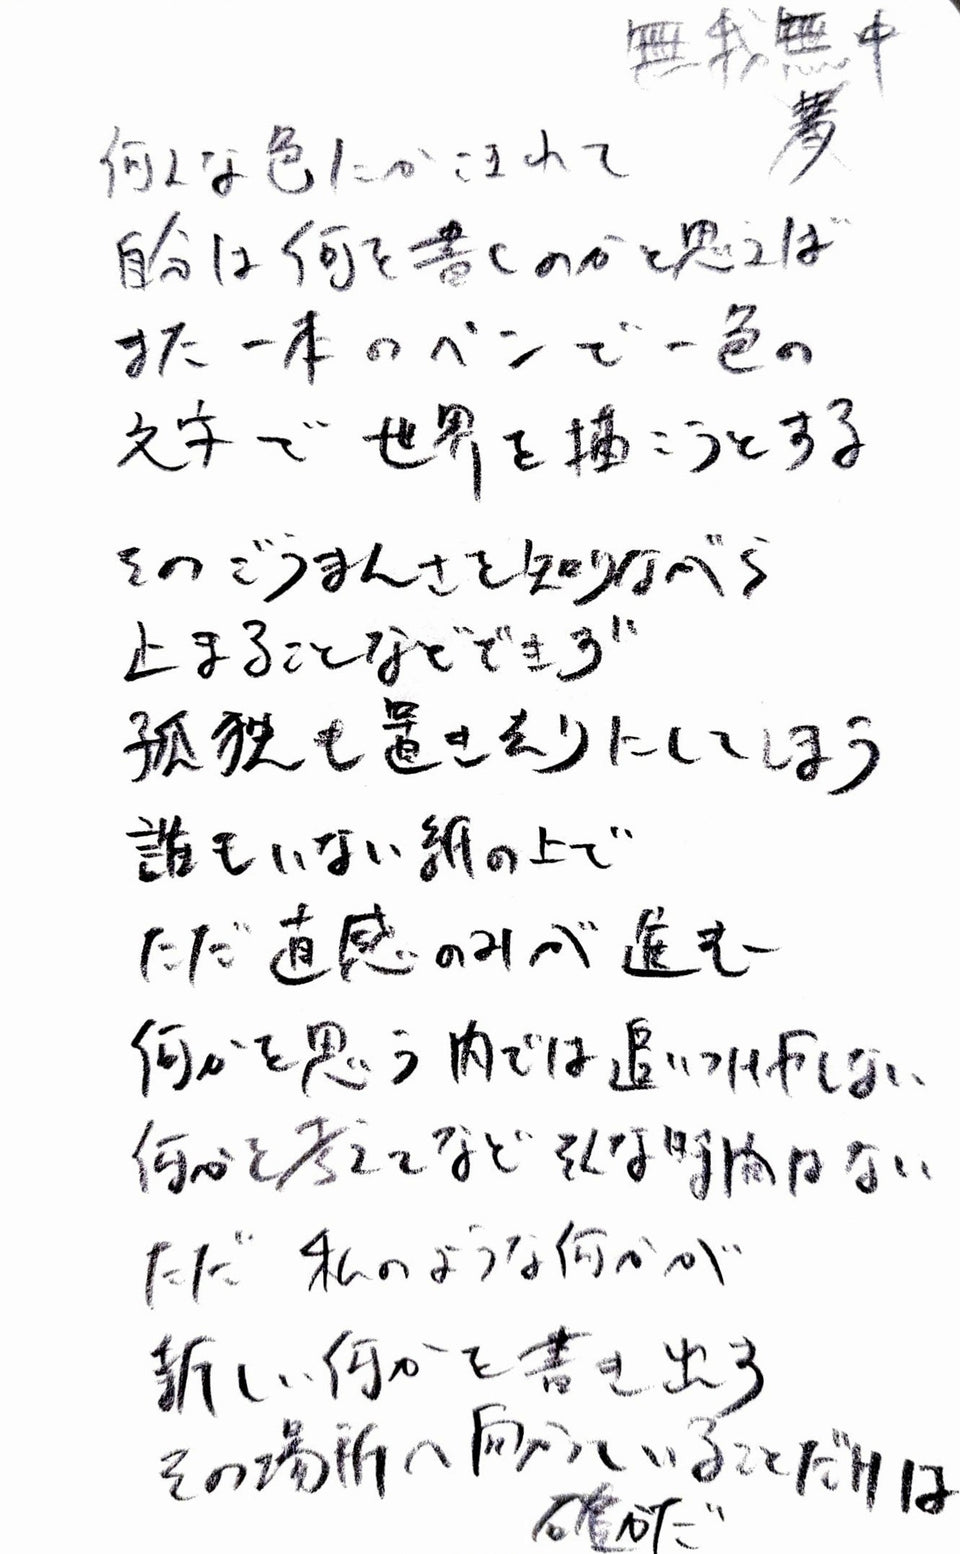 無我無中
夢
何んな色にかこまれて
自分は何を書くのかと思えば
また一本のペンで一色の
文字で世界を描こうとする
そのごうまんさを知りながら
止まることなどできず
孤独も置き去りにしてしまう
誰もいない紙の上で
ただ直感のみが進む
何かを思う内では追いつけやしない
何かを考えてなどそんな時間はない
ただ 私のような何かが
新しい何かを書き出す
その場所へ向かっていることだけは
確かだ